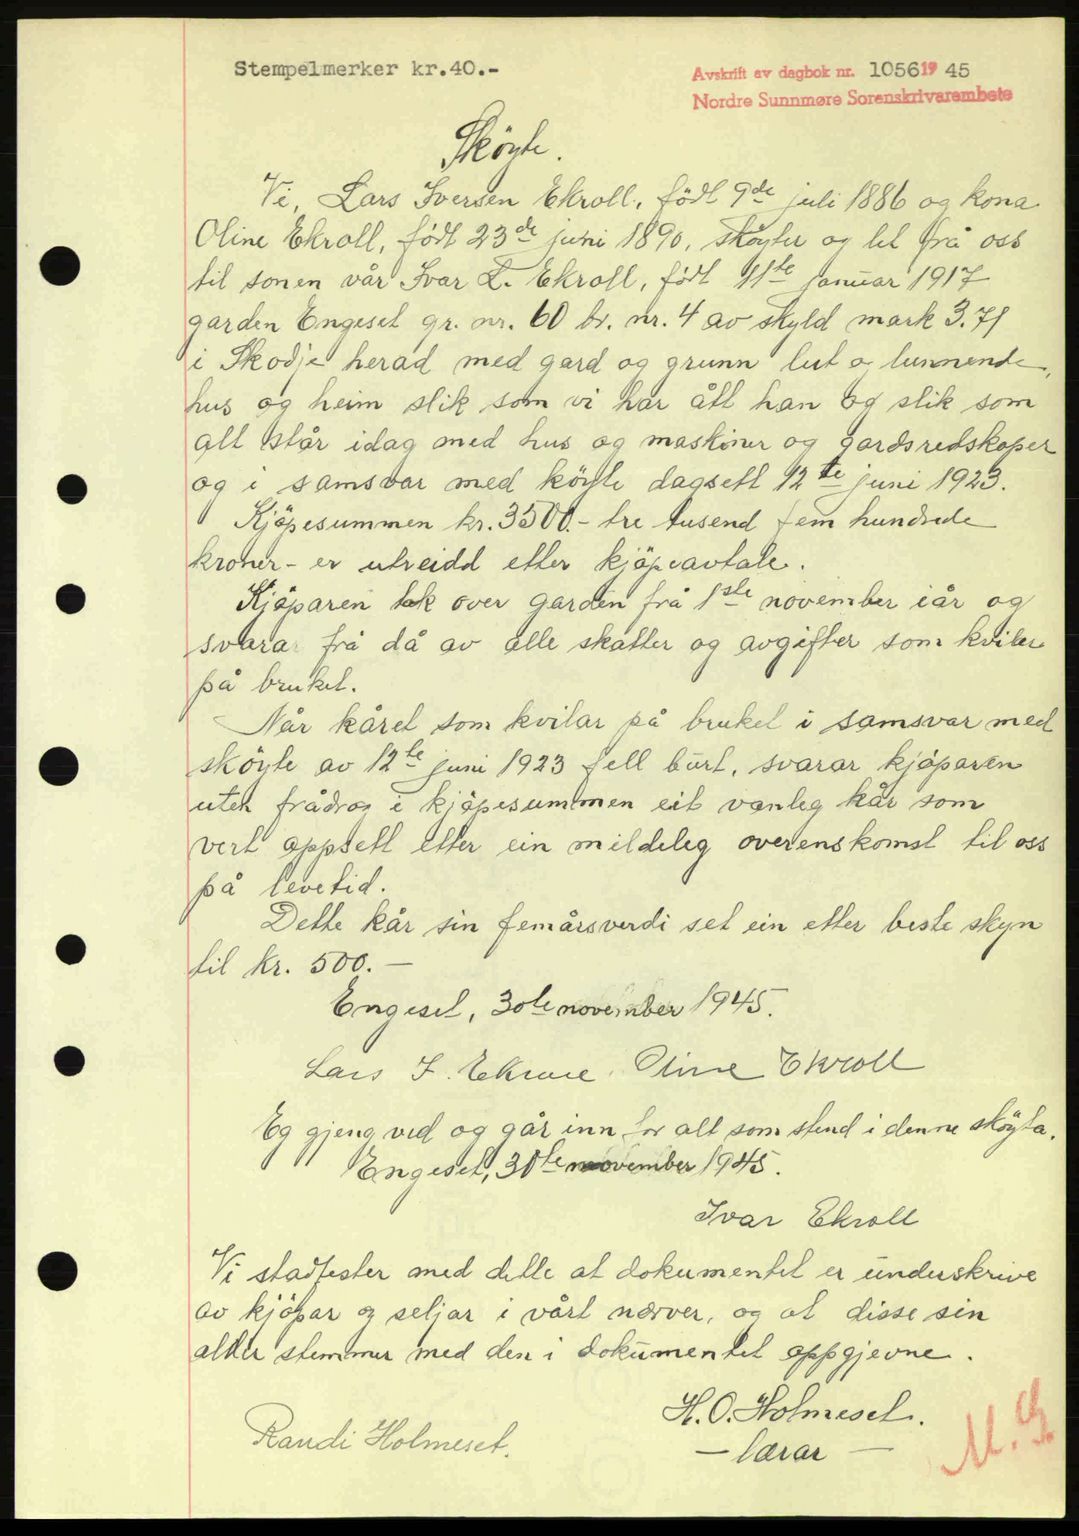 Stempelmerker kr.40.-
Avskrift av dagbok nr. 1056 19 45
Nordre Sunnmøre Sorenskrivarembete
Sköyte.
Vi, Lars Iversen Ekroll, född 9de juli 1886 og kona
Oline Ekroll, född 23de juni 1890, sköyter og let frå oss
til sonen vår Ivar L. Ekroll, född 11te januar 1917
garden Engeset gr. nr. 60 br. nr. 4 av skyld mark 3.71
i Skodje herad med gard og grunn lut og lunnende,
hus og heim slik som vi har ått han og slik som
alt står idag med hus og maskiner og gardsredskaper
og i samsvar med köyte dagsett 12te juni 1923.
Kjöpesummen kr. 3500.- tre tusend fem hundrede
kroner - er utreidd etter kjöpeavtale.
Kjöparen tok over garden frå 1ste november i år og
svarar frå då av alle skatter og avgifter som kviler
på bruket.
Når kåret som kvilar på bruket i samsvar med
sköyte av 12te juni 1923 fell burt, svarar kjöparen
uten frådrag i kjöpesummen eit vanleg kår som
vert oppsett etter ein mildeleg overenskomst til oss
på levetid.
Dette kår sin femårsverdi set ein etter beste skyn
til kr. 500.—
Engeset, 30te november 1945.
Lars I. Ekroll. Oline Ekroll
Eg gjeng ved og går inn for alt som stend i denne sköyta.
Engeset, 30te november 1945.
Ivar Ekroll
Vi stadfester med dette at dokumentet er underskrive
av kjöpar og seljar i vårt nærver, og at disse sin
alder stemmer med den i dokumentet oppgjevne.
H. O. Holmeset.
Randi Holmeset.
— lærar —
M. G.